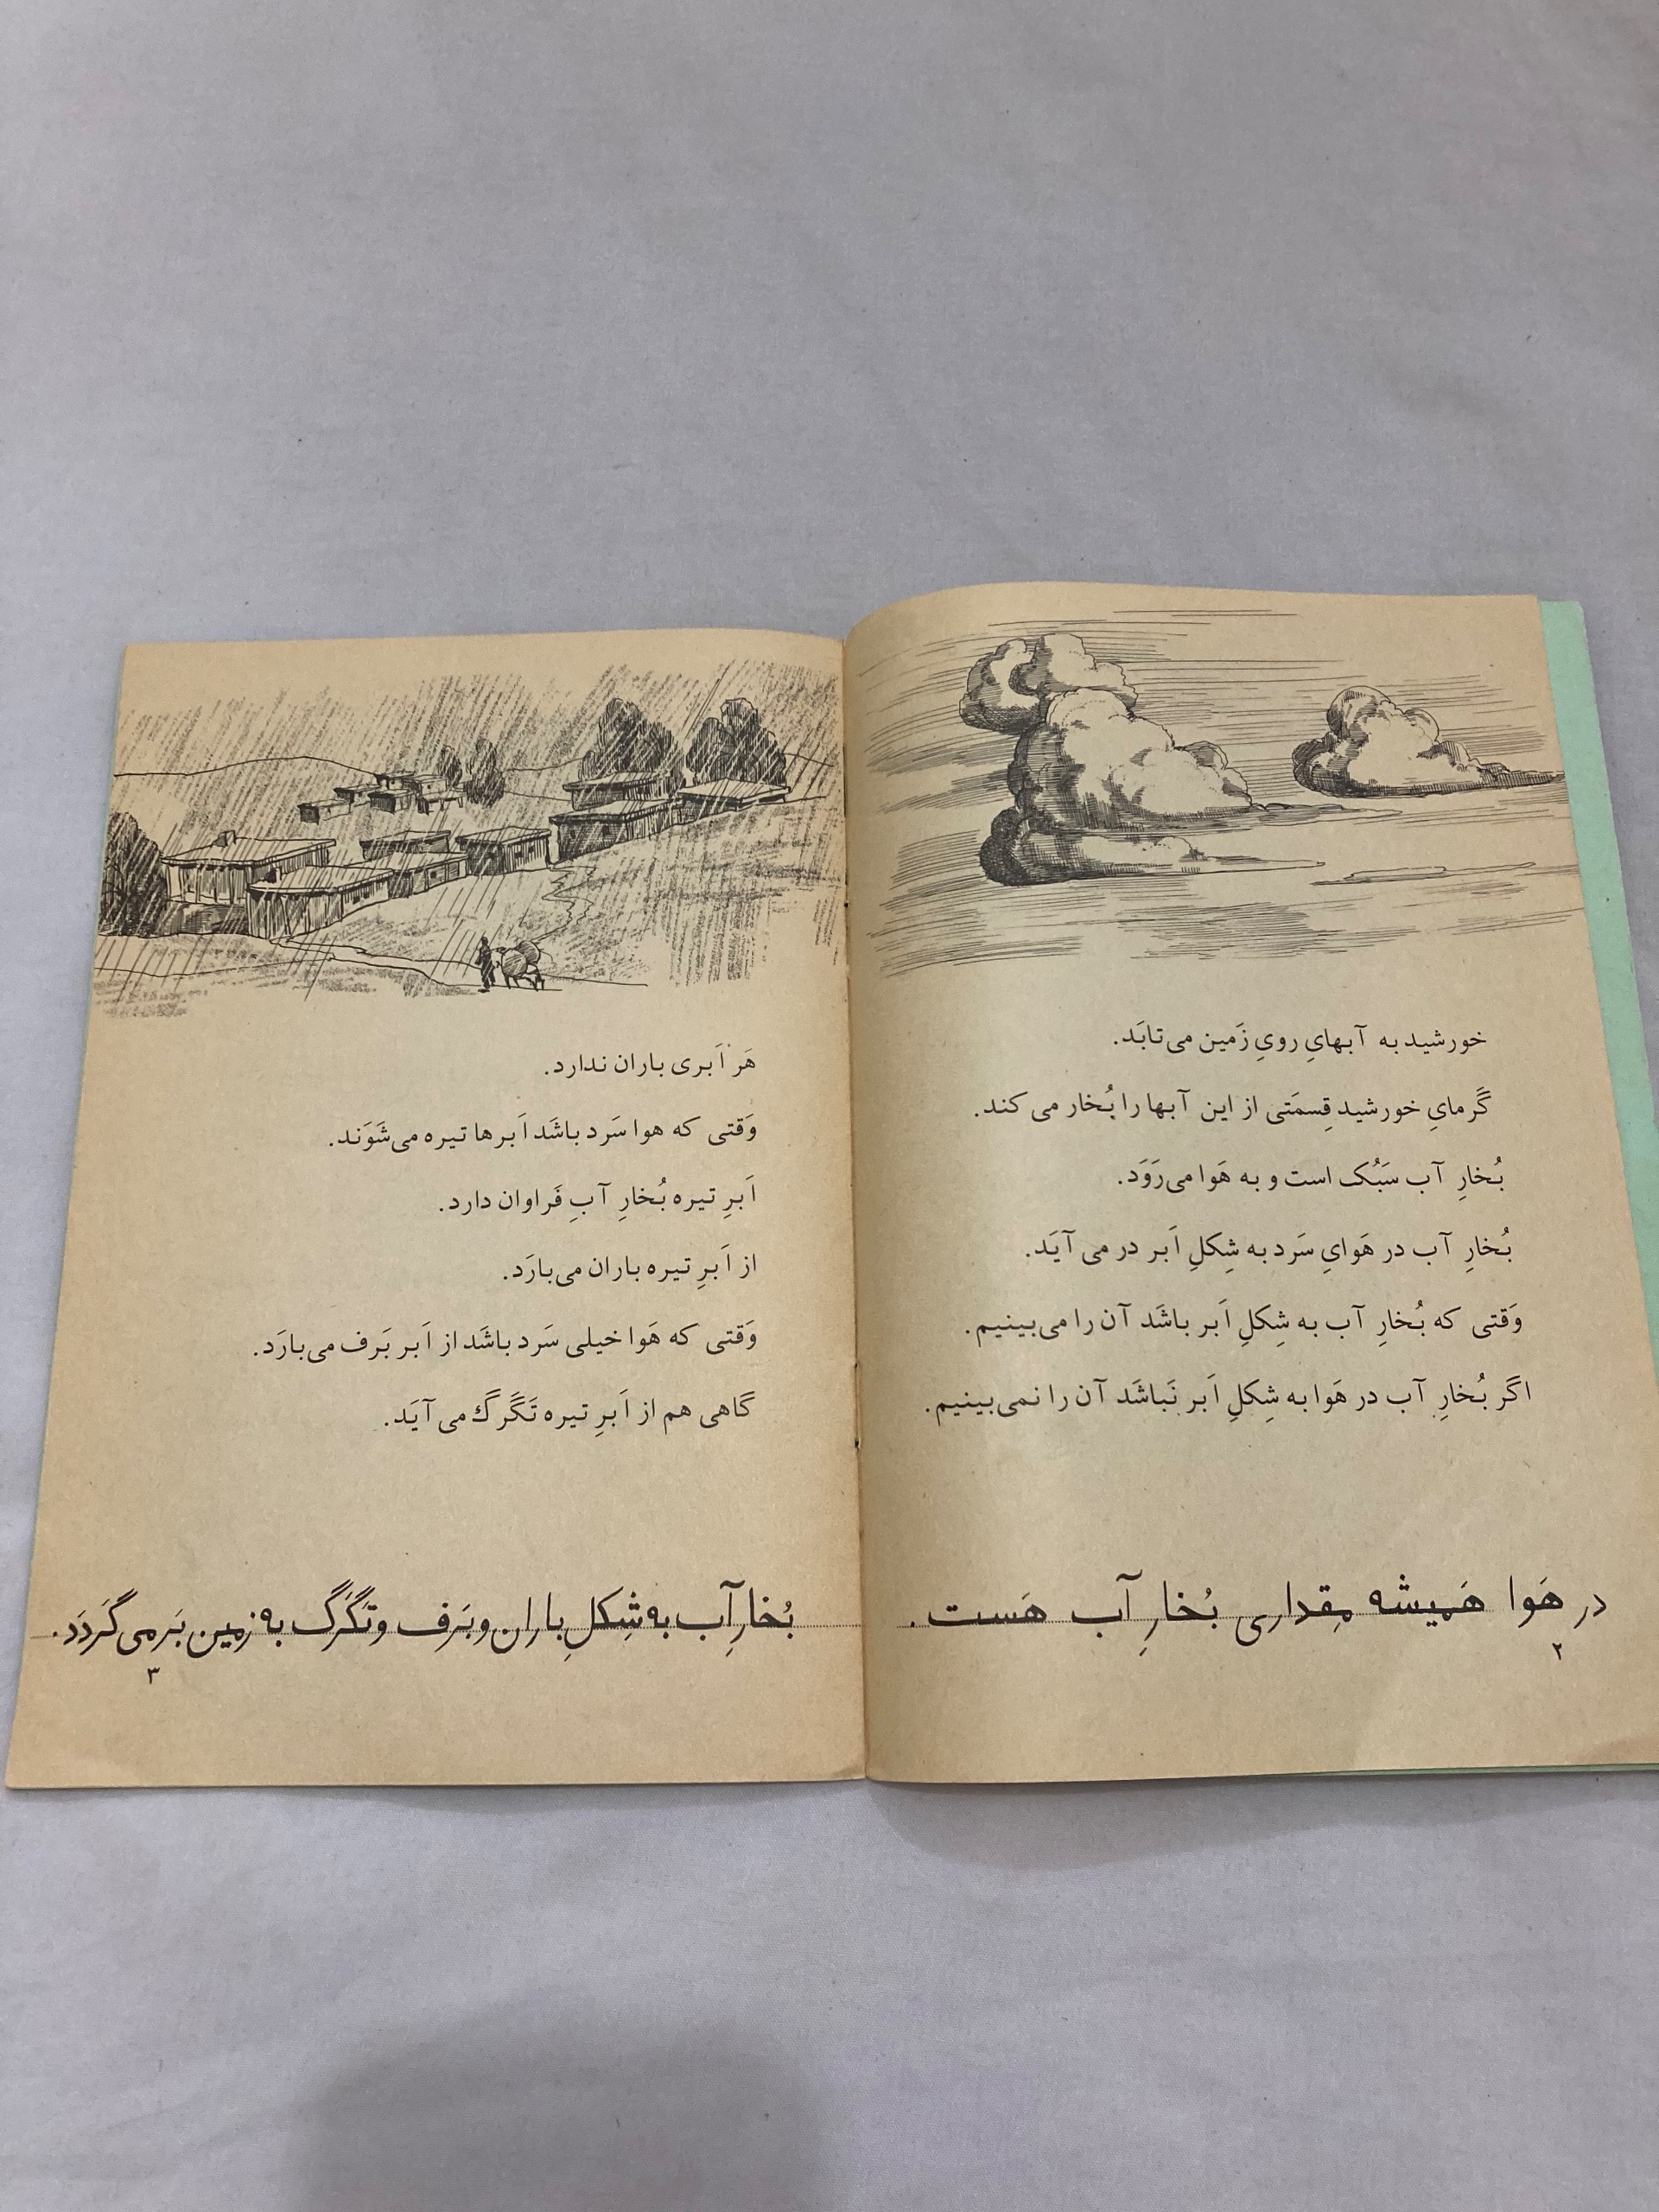 خورشید به آبهایِ رویِ زَمین می‌تابَد.
گَرمایِ خورشید قِسمَتی از این آبها را بُخار می‌کند.
بُخارِ آب سَبُک است و به هَوا می‌رَوَد.
بُخارِ آب در هَوایِ سَرد به شِکلِ اَبر در می‌آیَد.
وَقتی که بُخارِ آب به شِکلِ اَبر باشَد آن را می‌بینیم.
اگر بُخارِ آب در هَوا به شِکلِ اَبر نَباشَد آن را نمی‌بینیم.
در هَوا هَمیشه مِقداری بُخارِ آب هَست.
۲
هَر اَبری باران ندارد.
وَقتی که هوا سَرد باشَد اَبرها تیره می‌شَوَند.
اَبرِ تیره بُخارِ آبِ فَراوان دارد.
از اَبرِ تیره باران می‌بارَد.
وَقتی که هَوا خیلی سَرد باشَد از اَبر بَرف می‌بارَد.
گاهی هم از اَبرِ تیره تَگَرگ می‌آیَد.
بُخارِ آب به شِکلِ باران و بَرف و تَگَرگ به زمین بَر می‌گَردَد.
۳